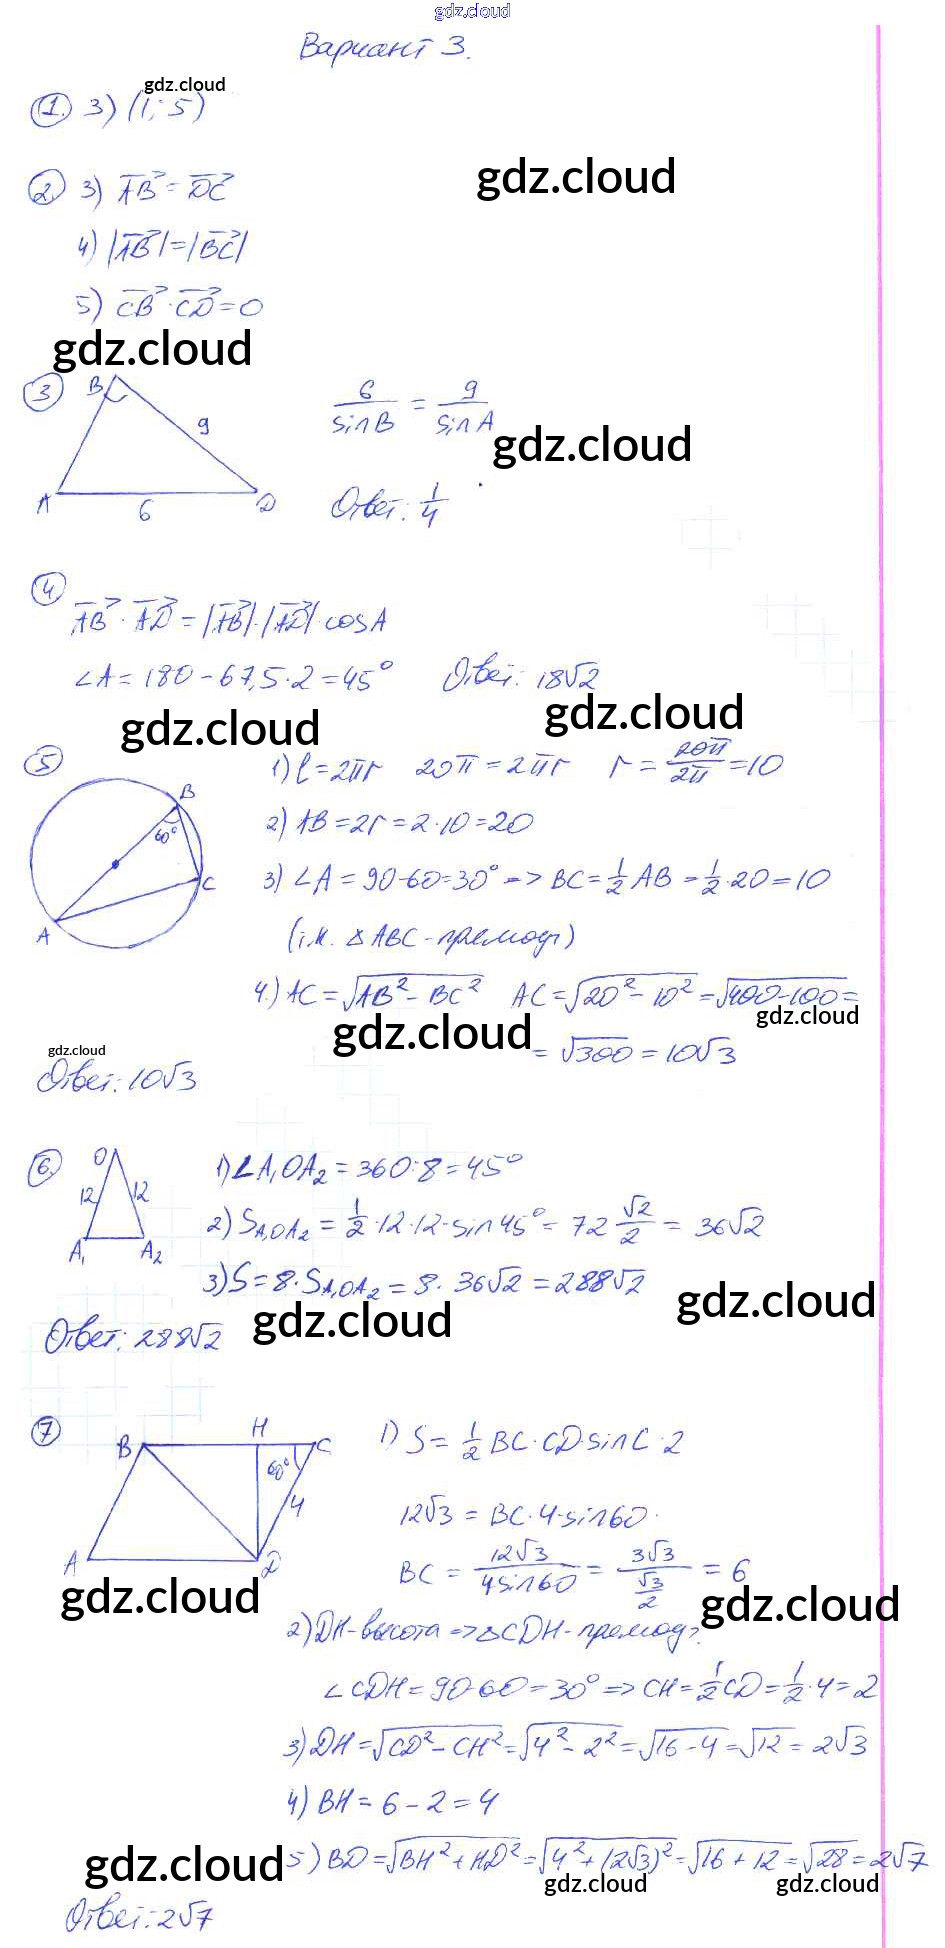 gdz.cloud
Вариант 3.
gdz.cloud
1. 3) (1; 5)
gdz.cloud
2. 3) AB = DC
4) |AB| = |BC|
5) CB · CD = 0
gdz.cloud
3 B 9 A 6 D
6/sin B = 9/sin A
gdz.cloud
Ответ: 1/4
4
AB · AD = |AB| · |AD| · cos A
∠A = 180 - 67,5 · 2 = 45° Ответ: 18√2
gdz.cloud gdz.cloud
5 B 60° C A
1) l = 2πr 20π = 2πr r = 20π/2π = 10
2) AB = 2r = 2 · 10 = 20
3) ∠A = 90-60 = 30° => BC = 1/2 AB = 1/2 · 20 = 10
(т.к. △ABC - прямоуг)
4.) AC = √(AB² - BC²) AC = √(20² - 10²) = √(400-100) =
gdz.cloud gdz.cloud
= √300 = 10√3
gdz.cloud
Ответ: 10√3
6 O 12 12 A₁ A₂
1) ∠A₁OA₂ = 360:8 = 45°
2) S A₁OA₂ = 1/2 · 12 · 12 · sin 45° = 72 √2/2 = 36√2
3) S = 8 · S A₁OA₂ = 8 · 36√2 = 288√2
gdz.cloud gdz.cloud
Ответ: 288√2
7 B H C 60° 4 A D
1) S = 1/2 BC · CD sin C · 2
12√3 = BC · 4 · sin 60
BC = 12√3/4 sin 60 = 3√3/(√3/2) = 6
gdz.cloud gdz.cloud
2) DH - высота => △CDH - прямоуг.
∠CDH = 90-60 = 30° => CH = 1/2 CD = 1/2 · 4 = 2
3) DH = √(CD² - CH²) = √(4² - 2²) = √(16-4) = √12 = 2√3
4) BH = 6 - 2 = 4
gdz.cloud
5) BD = √(BH² + HD²) = √(4² + (2√3)²) = √(16+12) = √28 = 2√7
gdz.cloud gdz.cloud
Ответ: 2√7